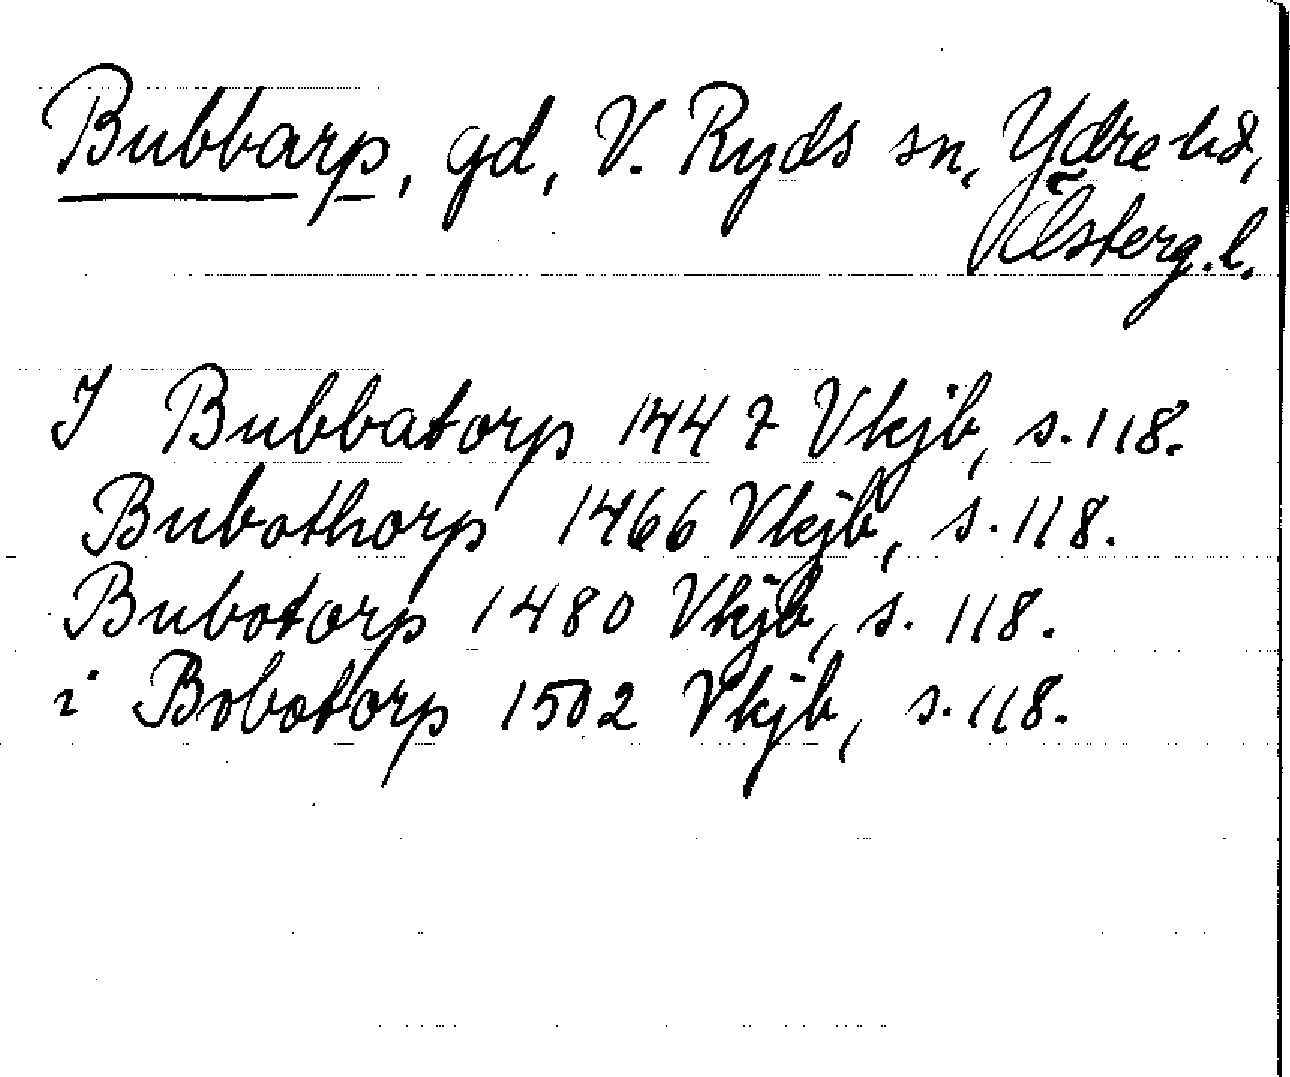 Bubbarp, gd, V. Ryds sn, Ydre hd,
Östergl.
I Bubbatorp 1447 Vkjb, s. 118.
Bubothorp 1466 Vkjb, s. 118.
Bubotorp 1480 Vkjb, s. 118.
i Bobotorp 1502 Vkjb, s. 118.